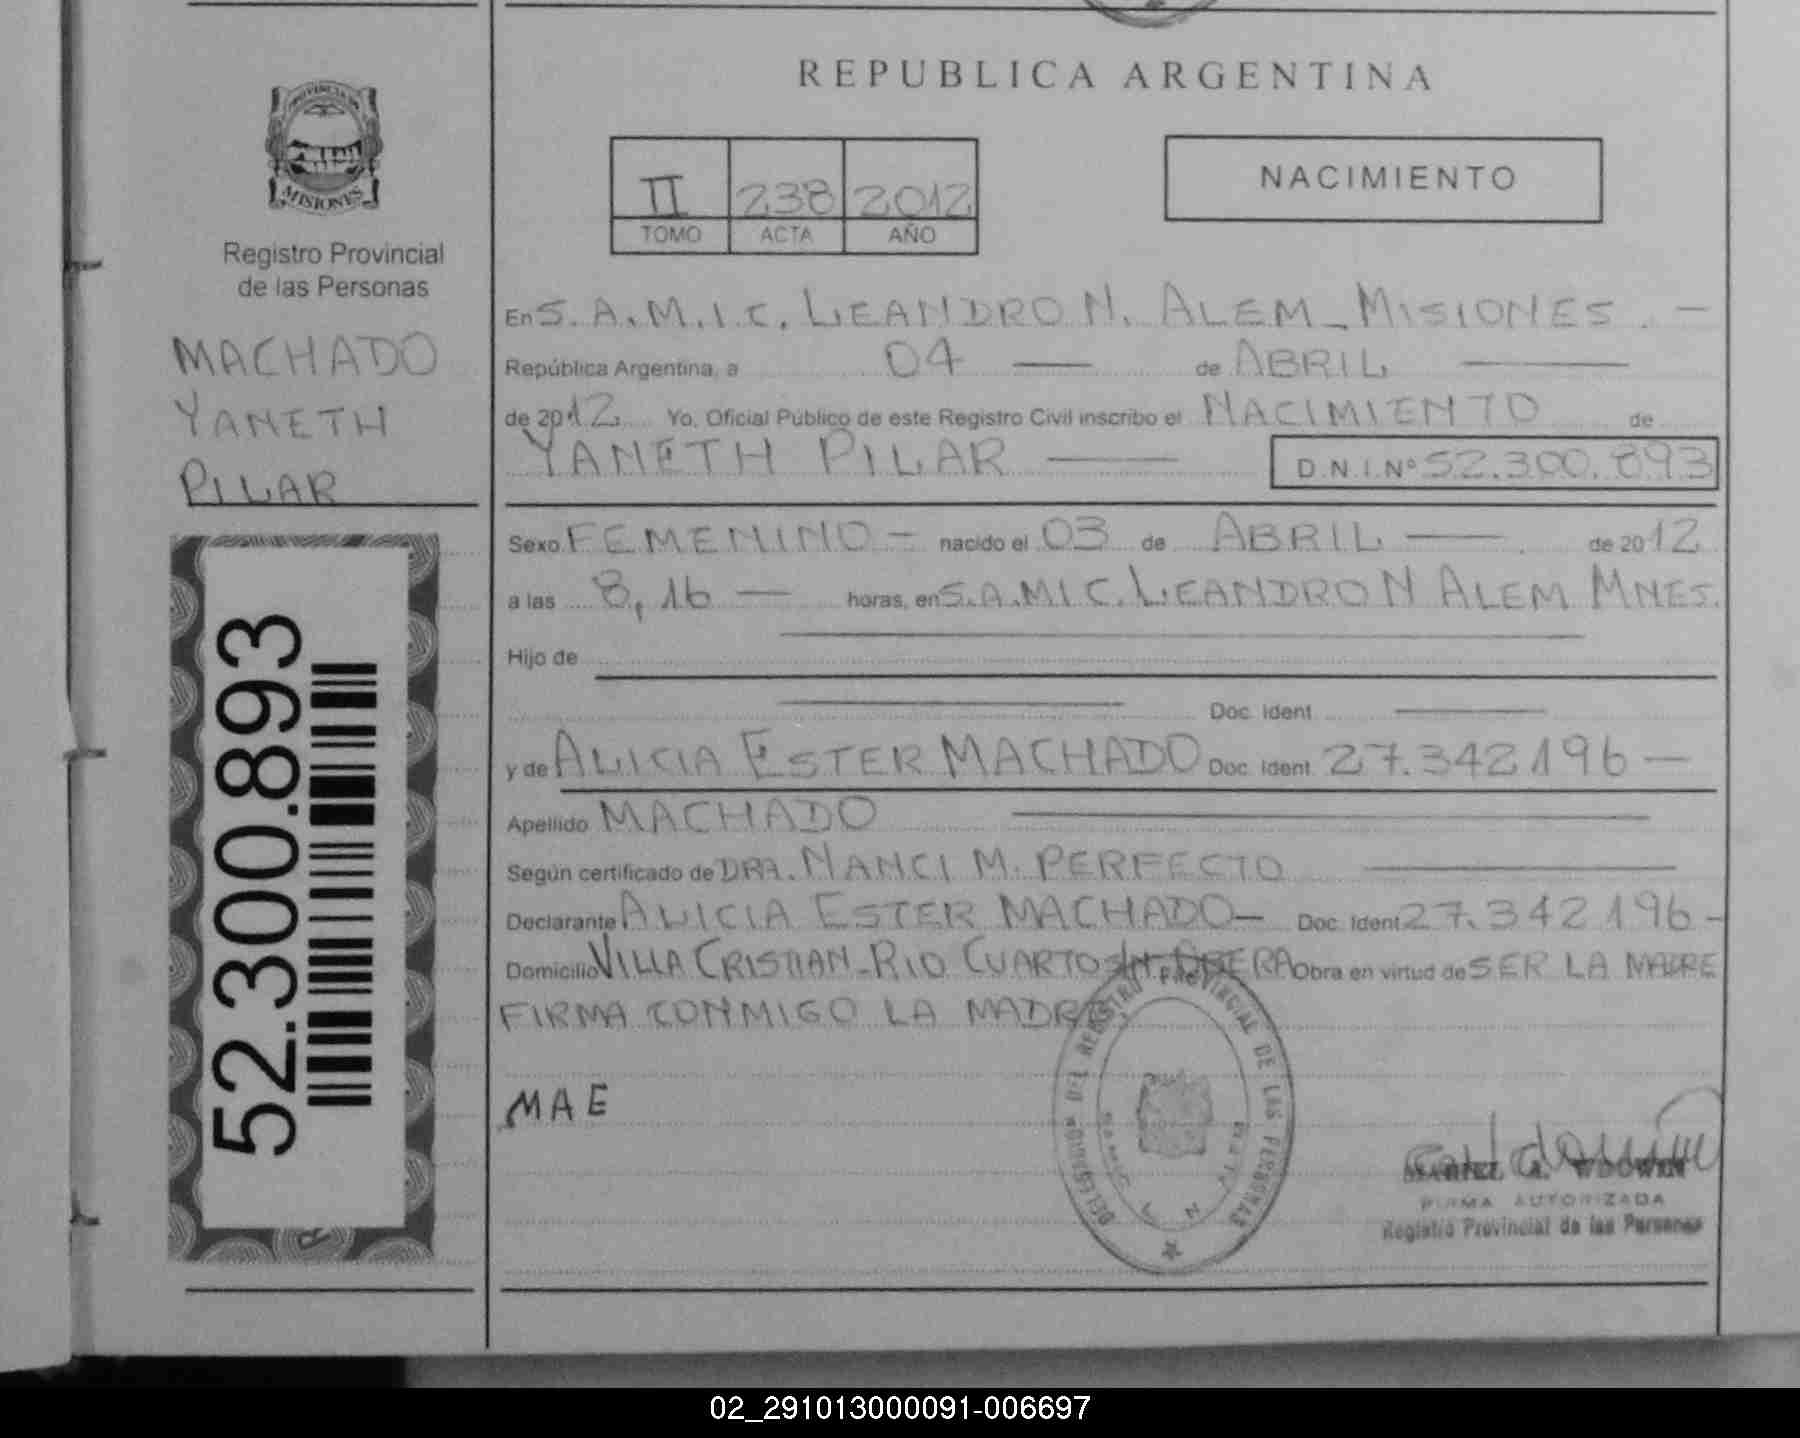 PROVINCIA DE
MISIONES
Registro Provincial
de las Personas
MACHADO
YANETH
PILAR
52.300.893
REPUBLICA ARGENTINA
II 238 2012
TOMO ACTA AÑO
NACIMIENTO
En S.A.M.I.C. LEANDRO N. ALEM - MISIONES. —
República Argentina, a 04 — de ABRIL —
de 2012 Yo, Oficial Público de este Registro Civil inscribo el NACIMIENTO de
YANETH PILAR — D.N.I.Nº 52.300.893
Sexo FEMENINO - nacido el 03 de ABRIL — de 2012
a las 8,16 — horas, en S.A.MIC. LEANDRO N ALEM MNES.
Hijo de
Doc. Ident. —
y de ALICIA ESTER MACHADO Doc. Ident. 27.342196 —
Apellido MACHADO —
Según certificado de DRA. NANCI M. PERFECTO —
Declarante ALICIA ESTER MACHADO - Doc. Ident. 27.342196 -
Domicilio VILLA CRISTIAN - RIO CUARTO S/N. OBERA Obra en virtud de SER LA MADRE
FIRMA CONMIGO LA MADRE
MAE
DEL REGISTRO PROVINCIAL DE LAS PERSONAS
FIRMA AUTORIZADA
Registro Provincial de las Personas
02_291013000091-006697